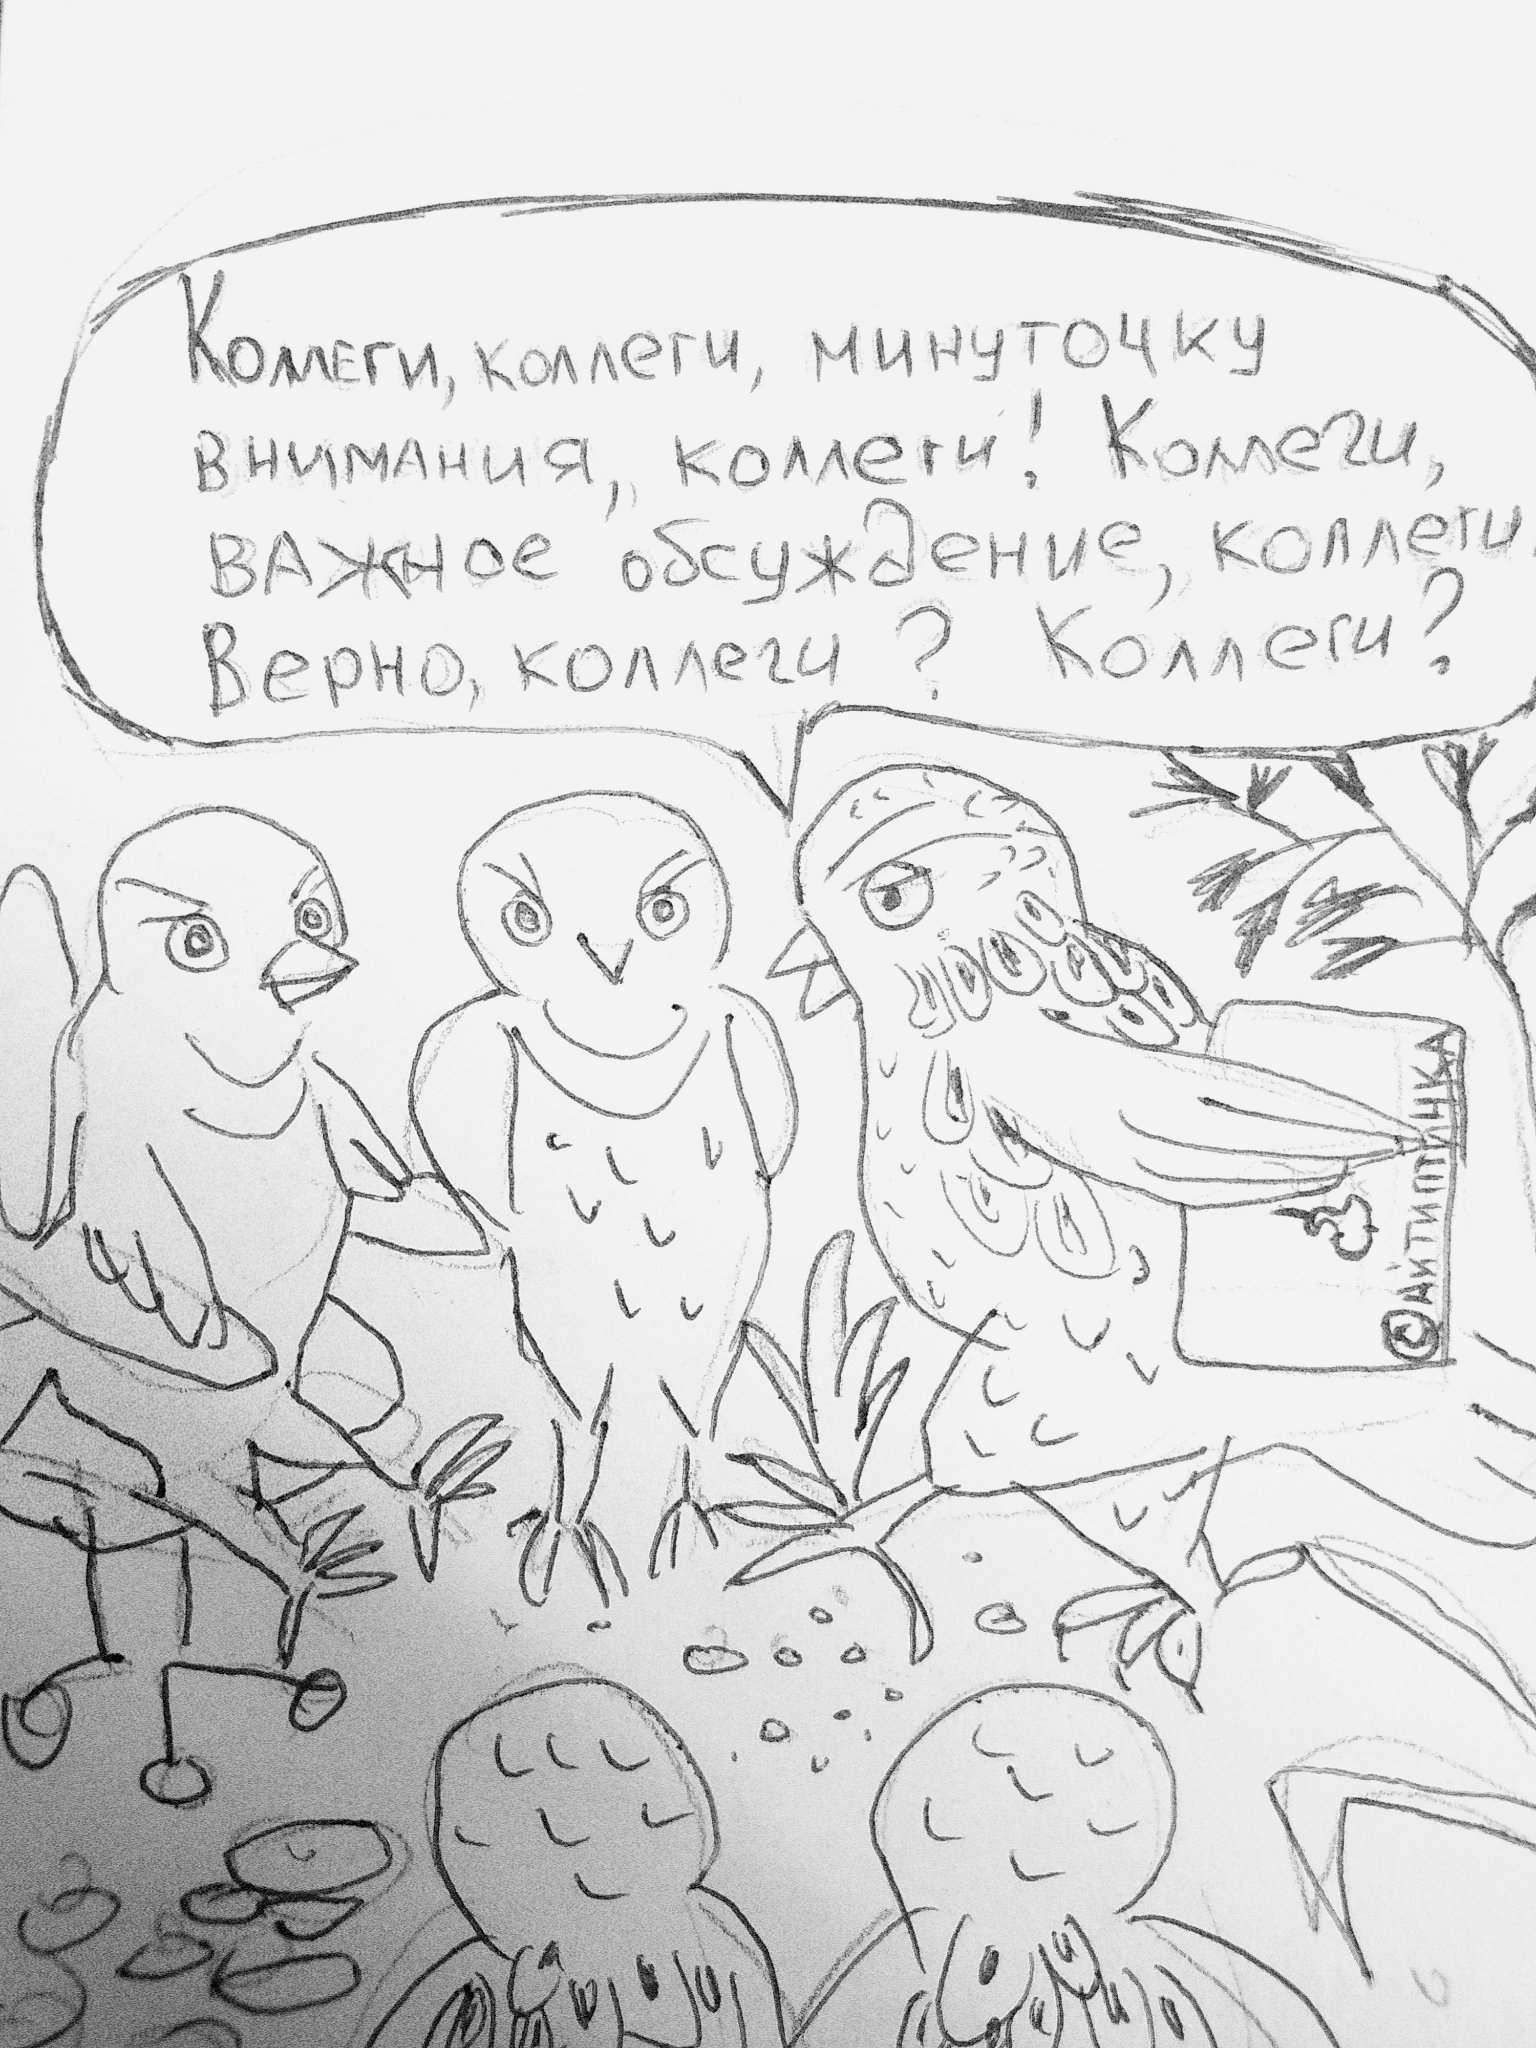 Коллеги, коллеги, минуточку
внимания, коллеги! Коллеги,
важное обсуждение, коллеги.
Верно, коллеги? Коллеги?
©АЙТИПТИЧКА